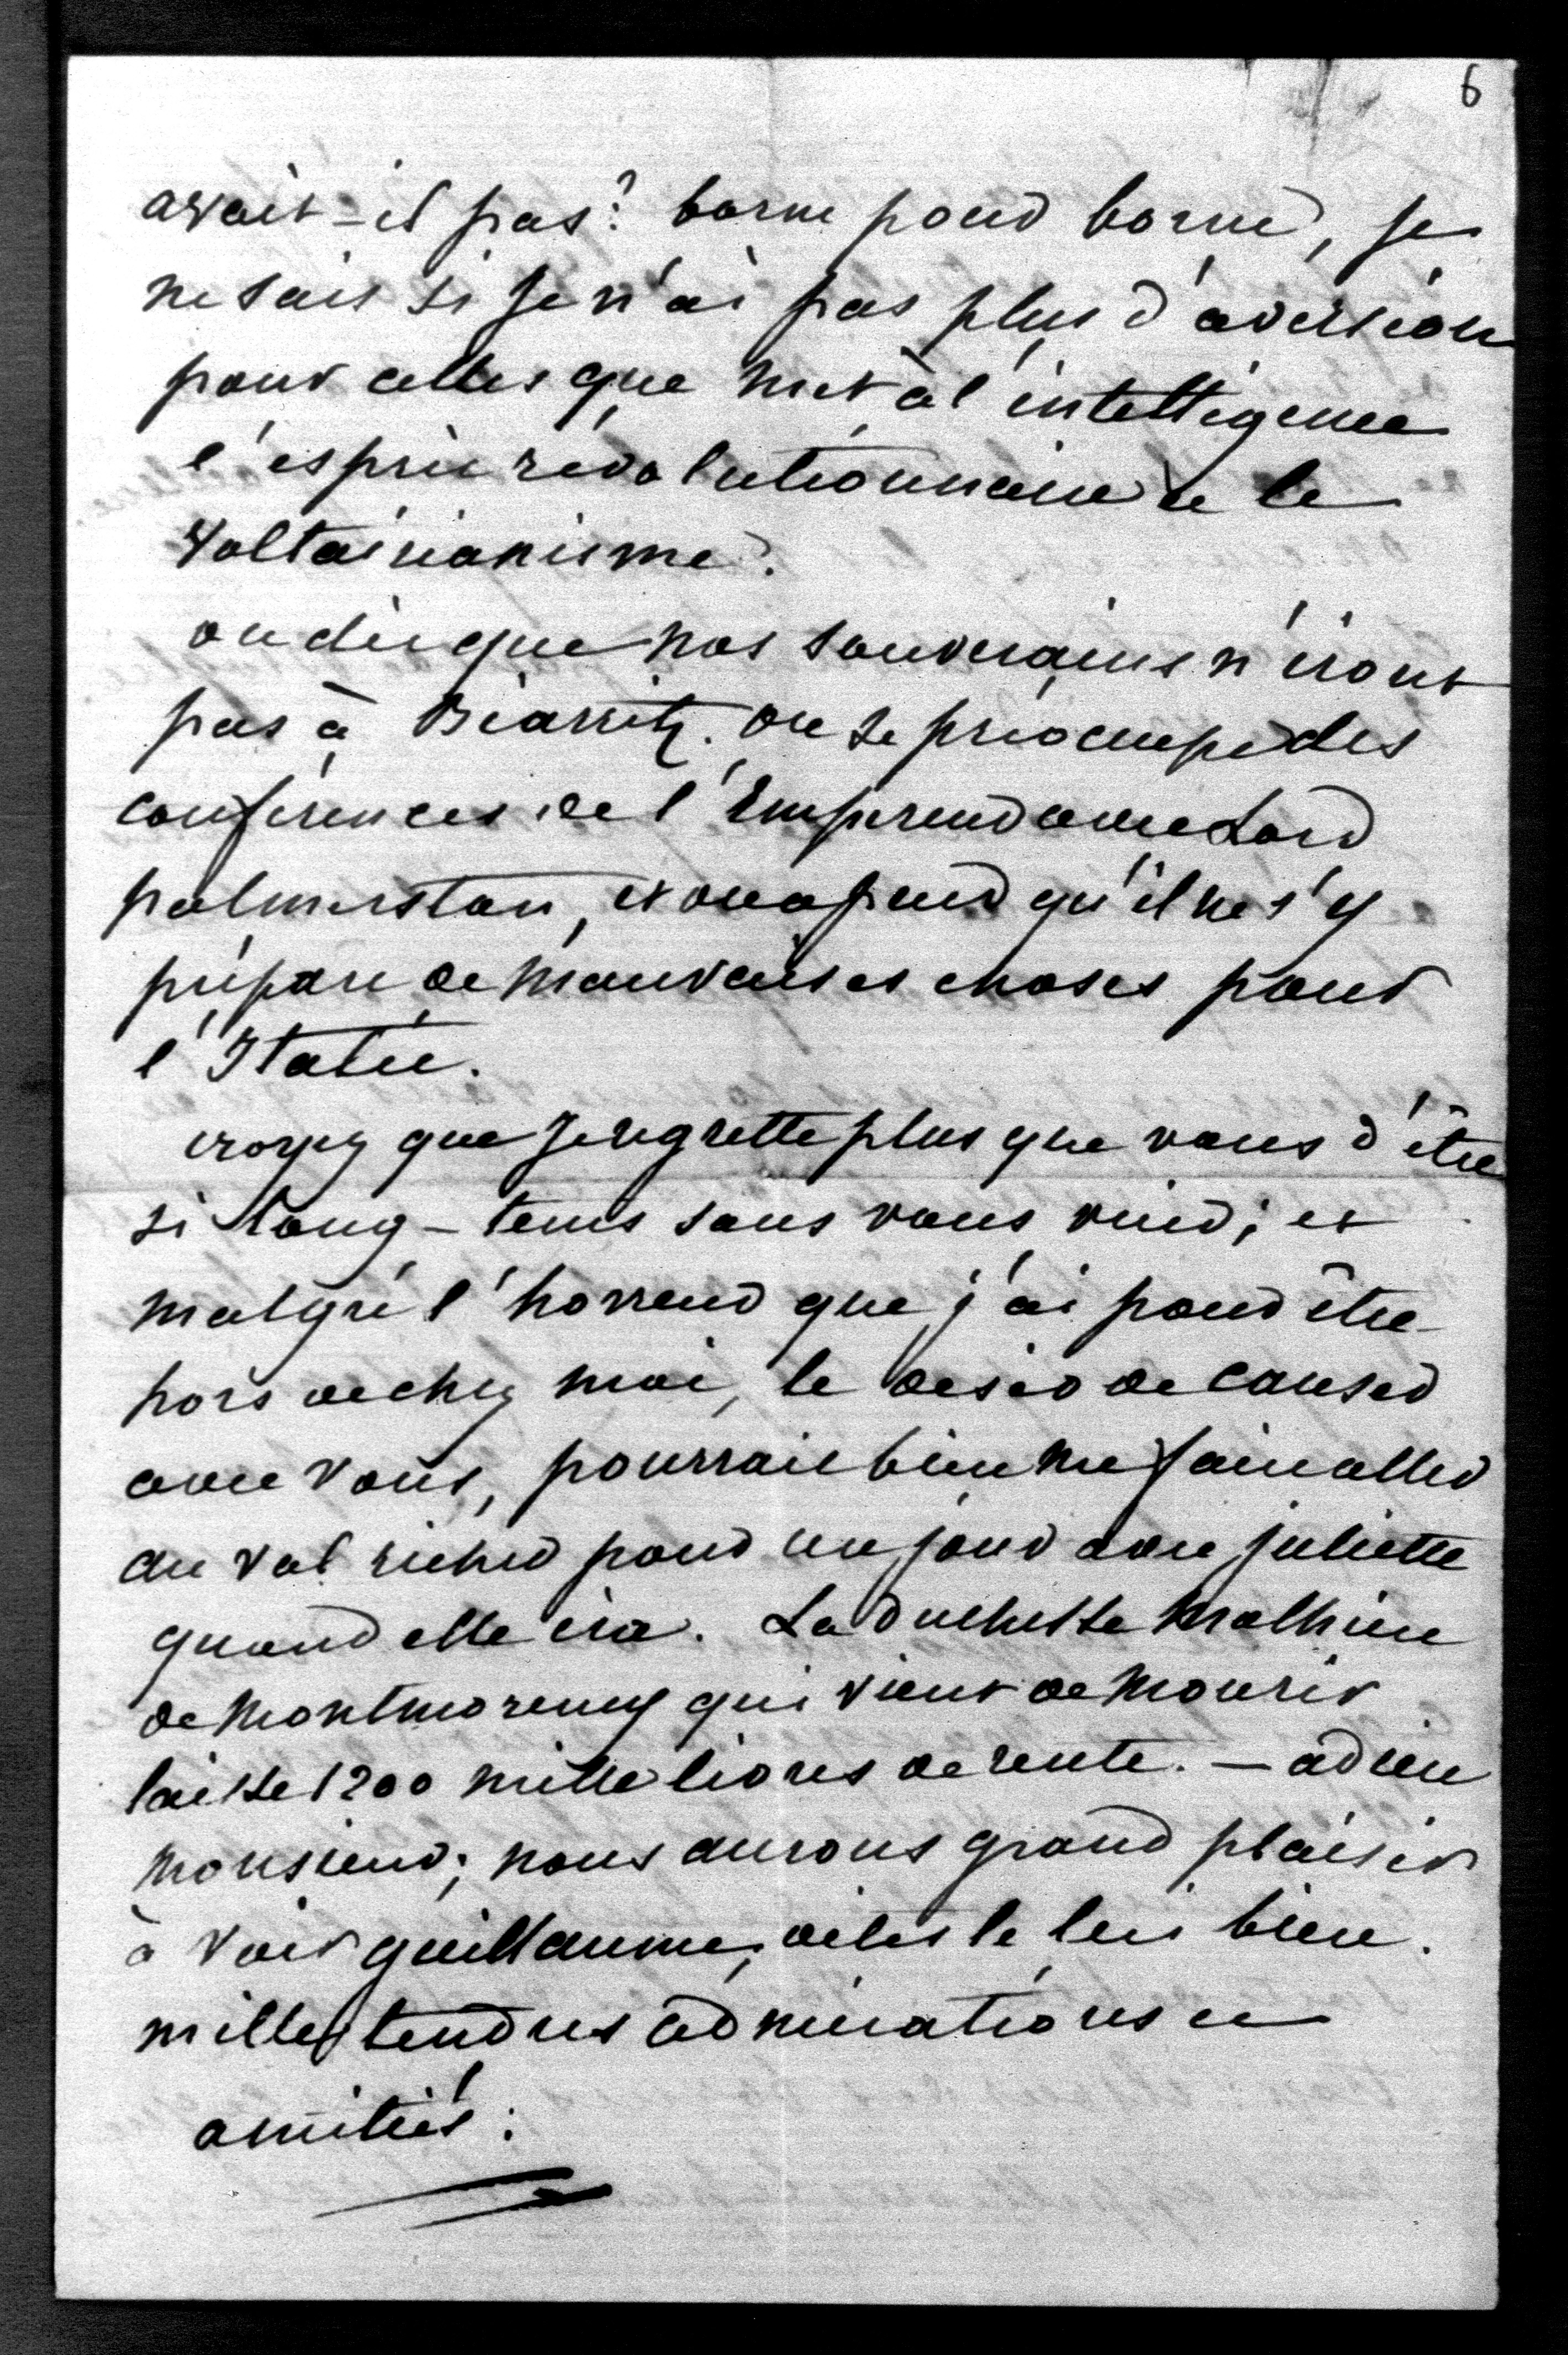 6
avait-il pas? borne pour borne, je
ne sais si je n'ai pas plus d'aversion
pour celles que met à l'intelligence
l'esprit révolutionnaire et le
Voltairianisme.
on dit que nos souverains n'iront
pas à Biarritz. on se préocupe des
conférences de l'Empereur avec Lord
palmerston, et on a peur qu'il ne s'y
prépare de mauvaises choses pour
l'Italie.
croyez que je regrette plus que vous d'être
si long-tems sans vous voir; et
malgré l'horreur que j'ai pour être
hors de chez moi, le desir de causer
avec vous, pourrait bien me faire aller
au Val richer pour un jour avec juliette
quand elle ira. La duchesse Mathieu
de Montmorency qui vient de mourir
laisse 1200 mille livres de rente. — adieu
monsieur; nous aurons grand plaisir
à voir guillaume; dites le lui bien.
mille tendres admirations et
amitiés.